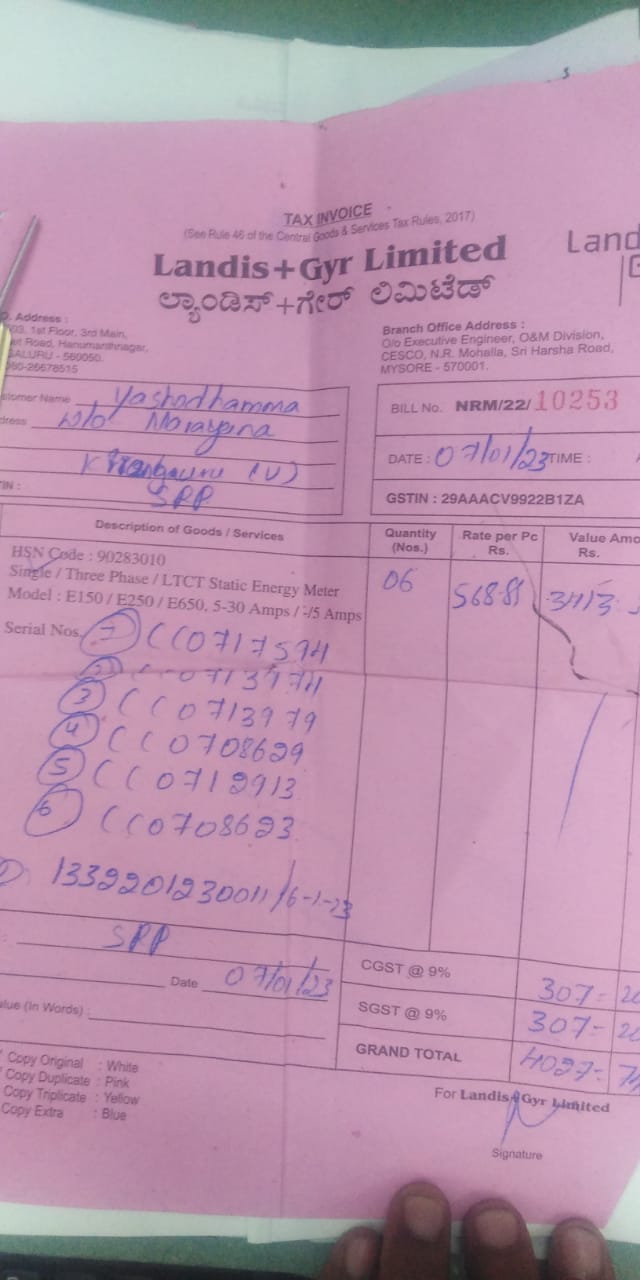 TAX INVOICE
(See Rule 46 of the Central Goods & Services Tax Rules, 2017)
Landis+Gyr Limited
ಲ್ಯಾಂಡಿಸ್+ಗೇರ್ ಲಿಮಿಟೆಡ್
Land
Address :
1st Floor, 3rd Main,
Road, Hanumanthnagar,
ALURU - 560050.
080-26678515
Branch Office Address :
O/o Executive Engineer, O&M Division,
CESCO, N.R. Mohalla, Sri Harsha Road,
MYSORE - 570001.
stomer Name Yashodhamma
dress W/o Narayana
(V)
SPP
TIN :
BILL No. NRM/22/ 10253
DATE : 07/01/23 TIME :
GSTIN : 29AAACV9922B1ZA
Description of Goods / Services
Quantity (Nos.)
Rate per Pc Rs.
Value Amo Rs.
HSN Code : 90283010
Single / Three Phase / LTCT Static Energy Meter
Model : E150 / E250 / E650, 5-30 Amps / -/5 Amps
06 568-81 3413
Serial Nos. 1 CC0717594
2 CC0713974
3 CC0713979
4 CC0708629
5 CC0712913
6 CC0708623
1332201230011/6-1-23
SPP
Date 07/01/23
alue (In Words) :
CGST @ 9% 307= 20
SGST @ 9% 307= 20
GRAND TOTAL 4027=
Copy Original : White
Copy Duplicate : Pink
Copy Triplicate : Yellow
Copy Extra : Blue
For Landis+Gyr Limited
Signature